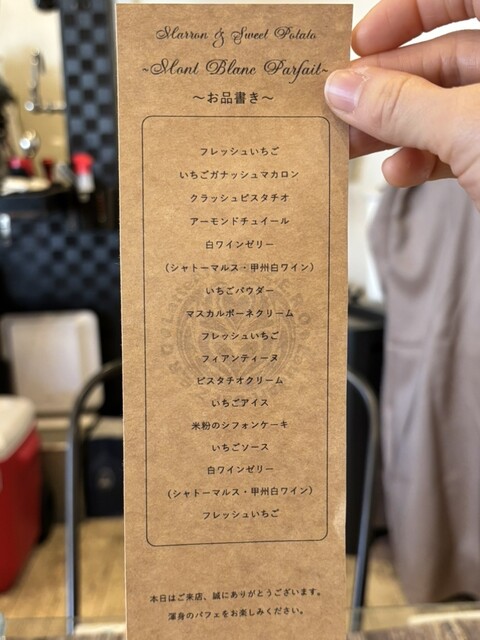 Marron & Sweet Potato
~Mont Blanc Parfait~
～お品書き～
フレッシュいちご
いちごガナッシュマカロン
クラッシュピスタチオ
アーモンドチュイール
白ワインゼリー
（シャトーマルス・甲州白ワイン）
いちごパウダー
マスカルポーネクリーム
フレッシュいちご
フィアンティーヌ
ピスタチオクリーム
いちごアイス
米粉のシフォンケーキ
いちごソース
白ワインゼリー
（シャトーマルス・甲州白ワイン）
フレッシュいちご
本日はご来店、誠にありがとうございます。
渾身のパフェをお楽しみください。